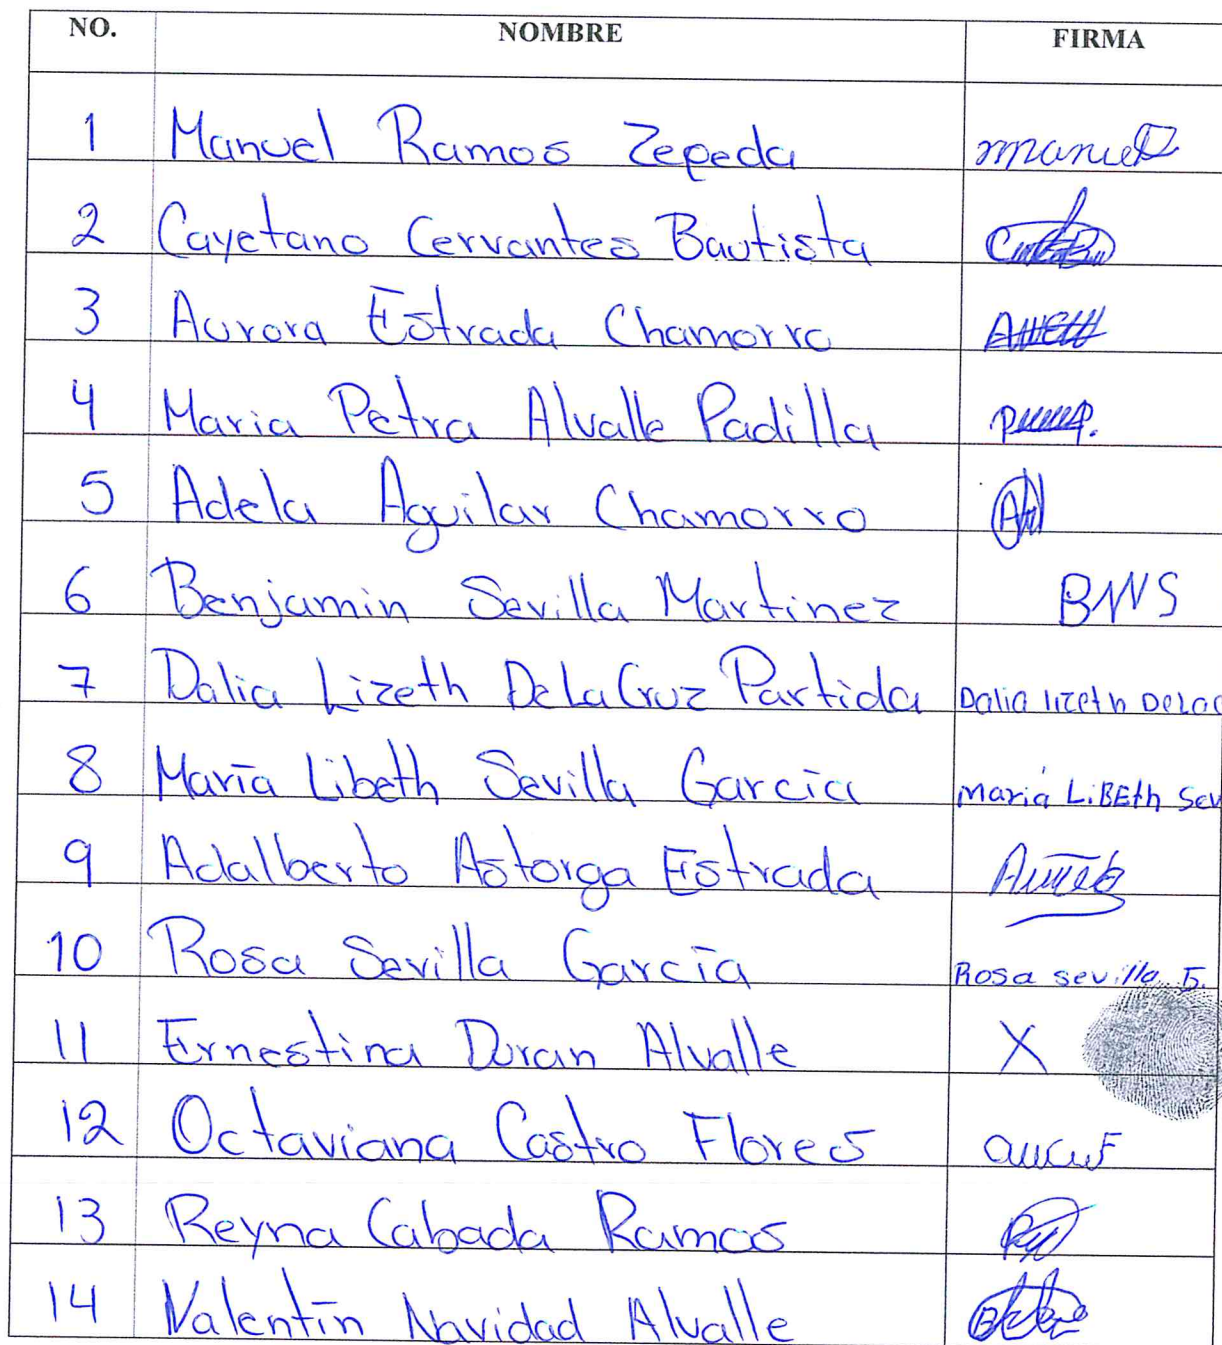 NO. NOMBRE FIRMA
1 Manuel Ramos Zepeda Manuel
2 Cayetano Cervantes Bautista
3 Aurora Estrada Chamorro
4 Maria Petra Alvalle Padilla
5 Adela Aguilar Chamorro
6 Benjamin Sevilla Martinez BMS
7 Dalia Lizeth De La Cruz Partida Dalia lizeth DeLaC
8 María Libeth Sevilla García Maria LiBEth Sev
9 Adalberto Astorga Estrada
10 Rosa Sevilla García Rosa sevilla G.
11 Ernestina Duran Alvalle X
12 Octaviana Castro Flores
13 Reyna Cabada Ramos
14 Valentín Navidad Alvalle